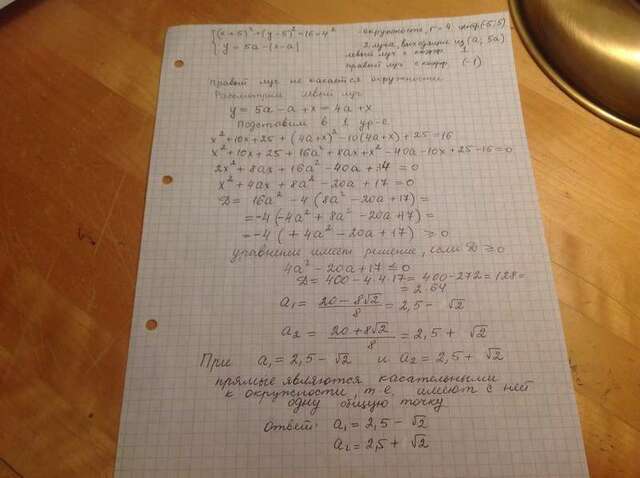 { (x+5)² + (y-5)² = 16 = 4² окружность, r = 4 центр(-5;5)
y = 5a - |x-a| 2 луча, выходящие из (a; 5a)
левый луч с коэфф. 1
правый луч с коэфф (-1)
Правый луч не касается окружности
Рассмотрим левый луч
y = 5a - a + x = 4a + x
Подставим в 1 ур-е
x² + 10x + 25 + (4a+x)² - 10(4a+x) + 25 = 16
x² + 10x + 25 + 16a² + 8ax + x² - 40a - 10x + 25 - 16 = 0
2x² + 8ax + 16a² - 40a + 34 = 0
x² + 4ax + 8a² - 20a + 17 = 0
D = 16a² - 4(8a² - 20a + 17) =
= -4(-4a² + 8a² - 20a + 17) =
= -4( + 4a² - 20a + 17) ≥ 0
уравнение имеет решение, если D ≥ 0
4a² - 20a + 17 ≤ 0
D = 400 - 4·4·17 = 400 - 272 = 128 =
= 2·64
a₁ = (20 - 8√2)/8 = 2,5 - √2
a₂ = (20 + 8√2)/8 = 2,5 + √2
При a₁ = 2,5 - √2 и a₂ = 2,5 + √2
прямые являются касательными
к окружности, т.е. имеют с ней
одну общую точку
Ответ: a₁ = 2,5 - √2
a₂ = 2,5 + √2